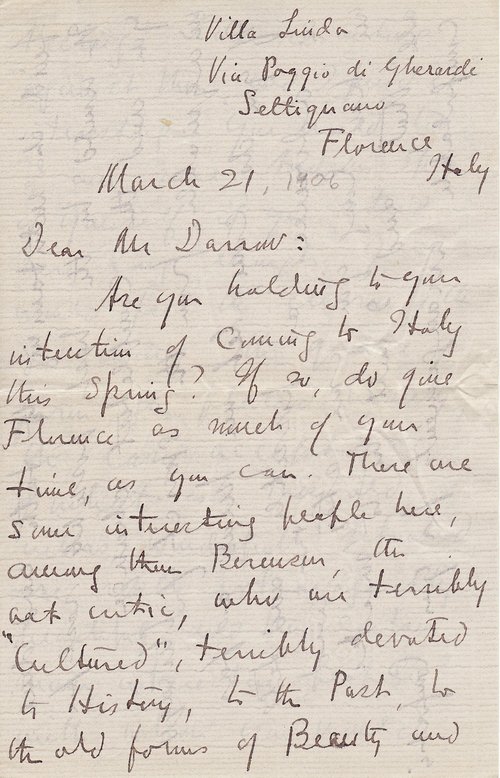 Villa Linda
Via Poggio di Gherardi
Settignano
Florence
Italy
March 21, 1906
Dear Mr Darrow:
Are you holding to your
intention of coming to Italy
this Spring? If so, do give
Florence as much of your
time, as you can. There are
some interesting people here,
among them Berenson, the
art critic, who are terribly
"Cultured", terribly devoted
to History, to the Past, to
the old forms of Beauty and